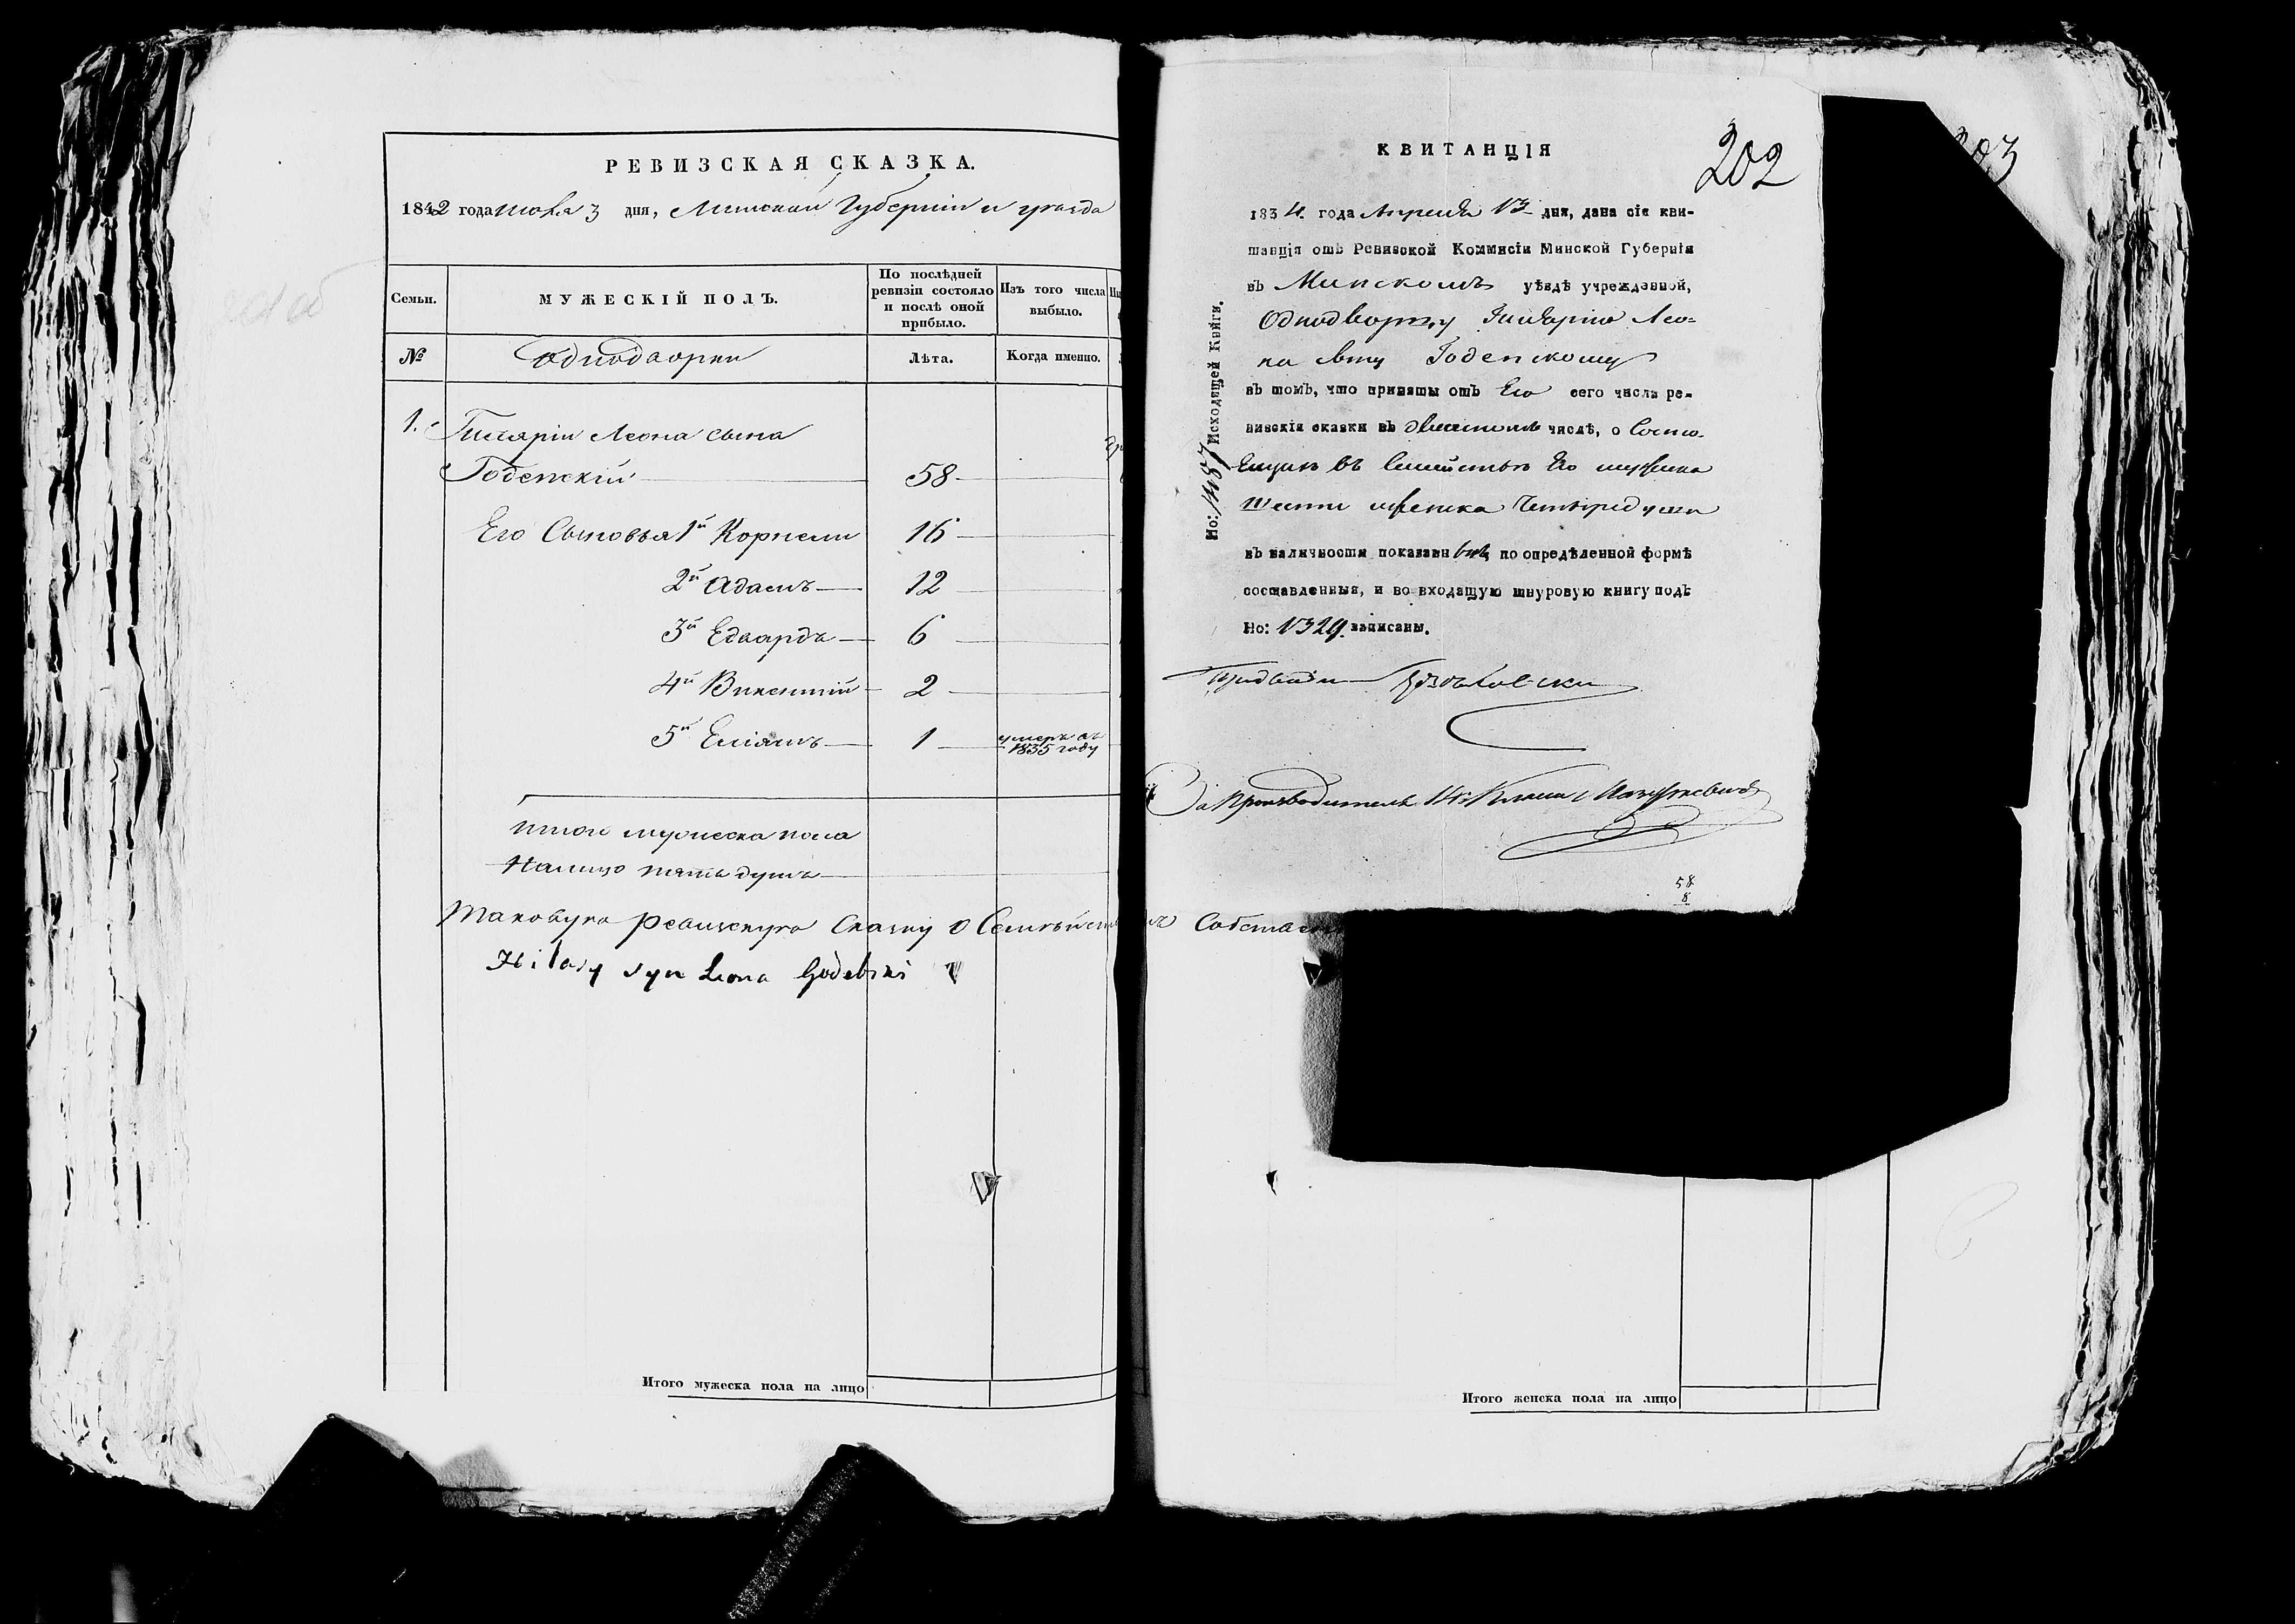 РЕВИЗСКАЯ СКАЗКА.
1842 года июля 3 дня, Минской Губернiи и уѣзда
Семьи.
МУЖЕСКIЙ ПОЛЪ.
По послѣдней ревизiи состояло и послѣ оной прибыло.
Изъ того числа выбыло.
№
Однодворцы
Лѣта.
Когда именно.
1. Гилярiй Леона сынъ
Годебскiй 58
Его Сыновья 1й Корнели 16
2й Адамъ 12
3й Едвардъ 6
4й Викентiй 2
5й 1 умеръ въ 1835 году
Итого мужеска пола
Налицо пять душъ
Таковую ревизскую Сказку о Семействѣ Собствен
Hilary syn Leona Godebski
Итого мужеска пола на лицо
КВИТАНЦIЯ
202
203
1834 года Апреля 13 дня, дана сiя кви-
танцiя отъ Ревизской Коммисiи Минской Губернiи
въ Минскомъ уѣздѣ учрежденной,
Однодворцу Гилярiю Лео-
на сыну Годебскому
въ томъ, что приняты отъ Его сего числа ре-
визскiя сказки въ числѣ, о Состо-
ящихъ въ Семействѣ Его мужеска
шести женска Четыре души
въ наличности показан по опредѣленной формѣ
составленныя, и во входящую шнуровую книгу подъ
Но: 1329 записаны.
Но: 1137 Исходящей Книги.
За Производителя 14го Класса
58
8
Итого женска пола на лицо